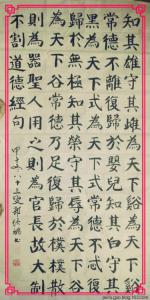 知其雄守其雌為天下谿為天下谿
常德不離復歸於嬰兒知其白守其
黑為天下式為天下式常德不忒復
歸於無極知其榮守其辱為天下谷
為天下谷常德乃足復歸於樸樸散
則為器聖人用之則為官長故大制
不割道德經句
八十三叟